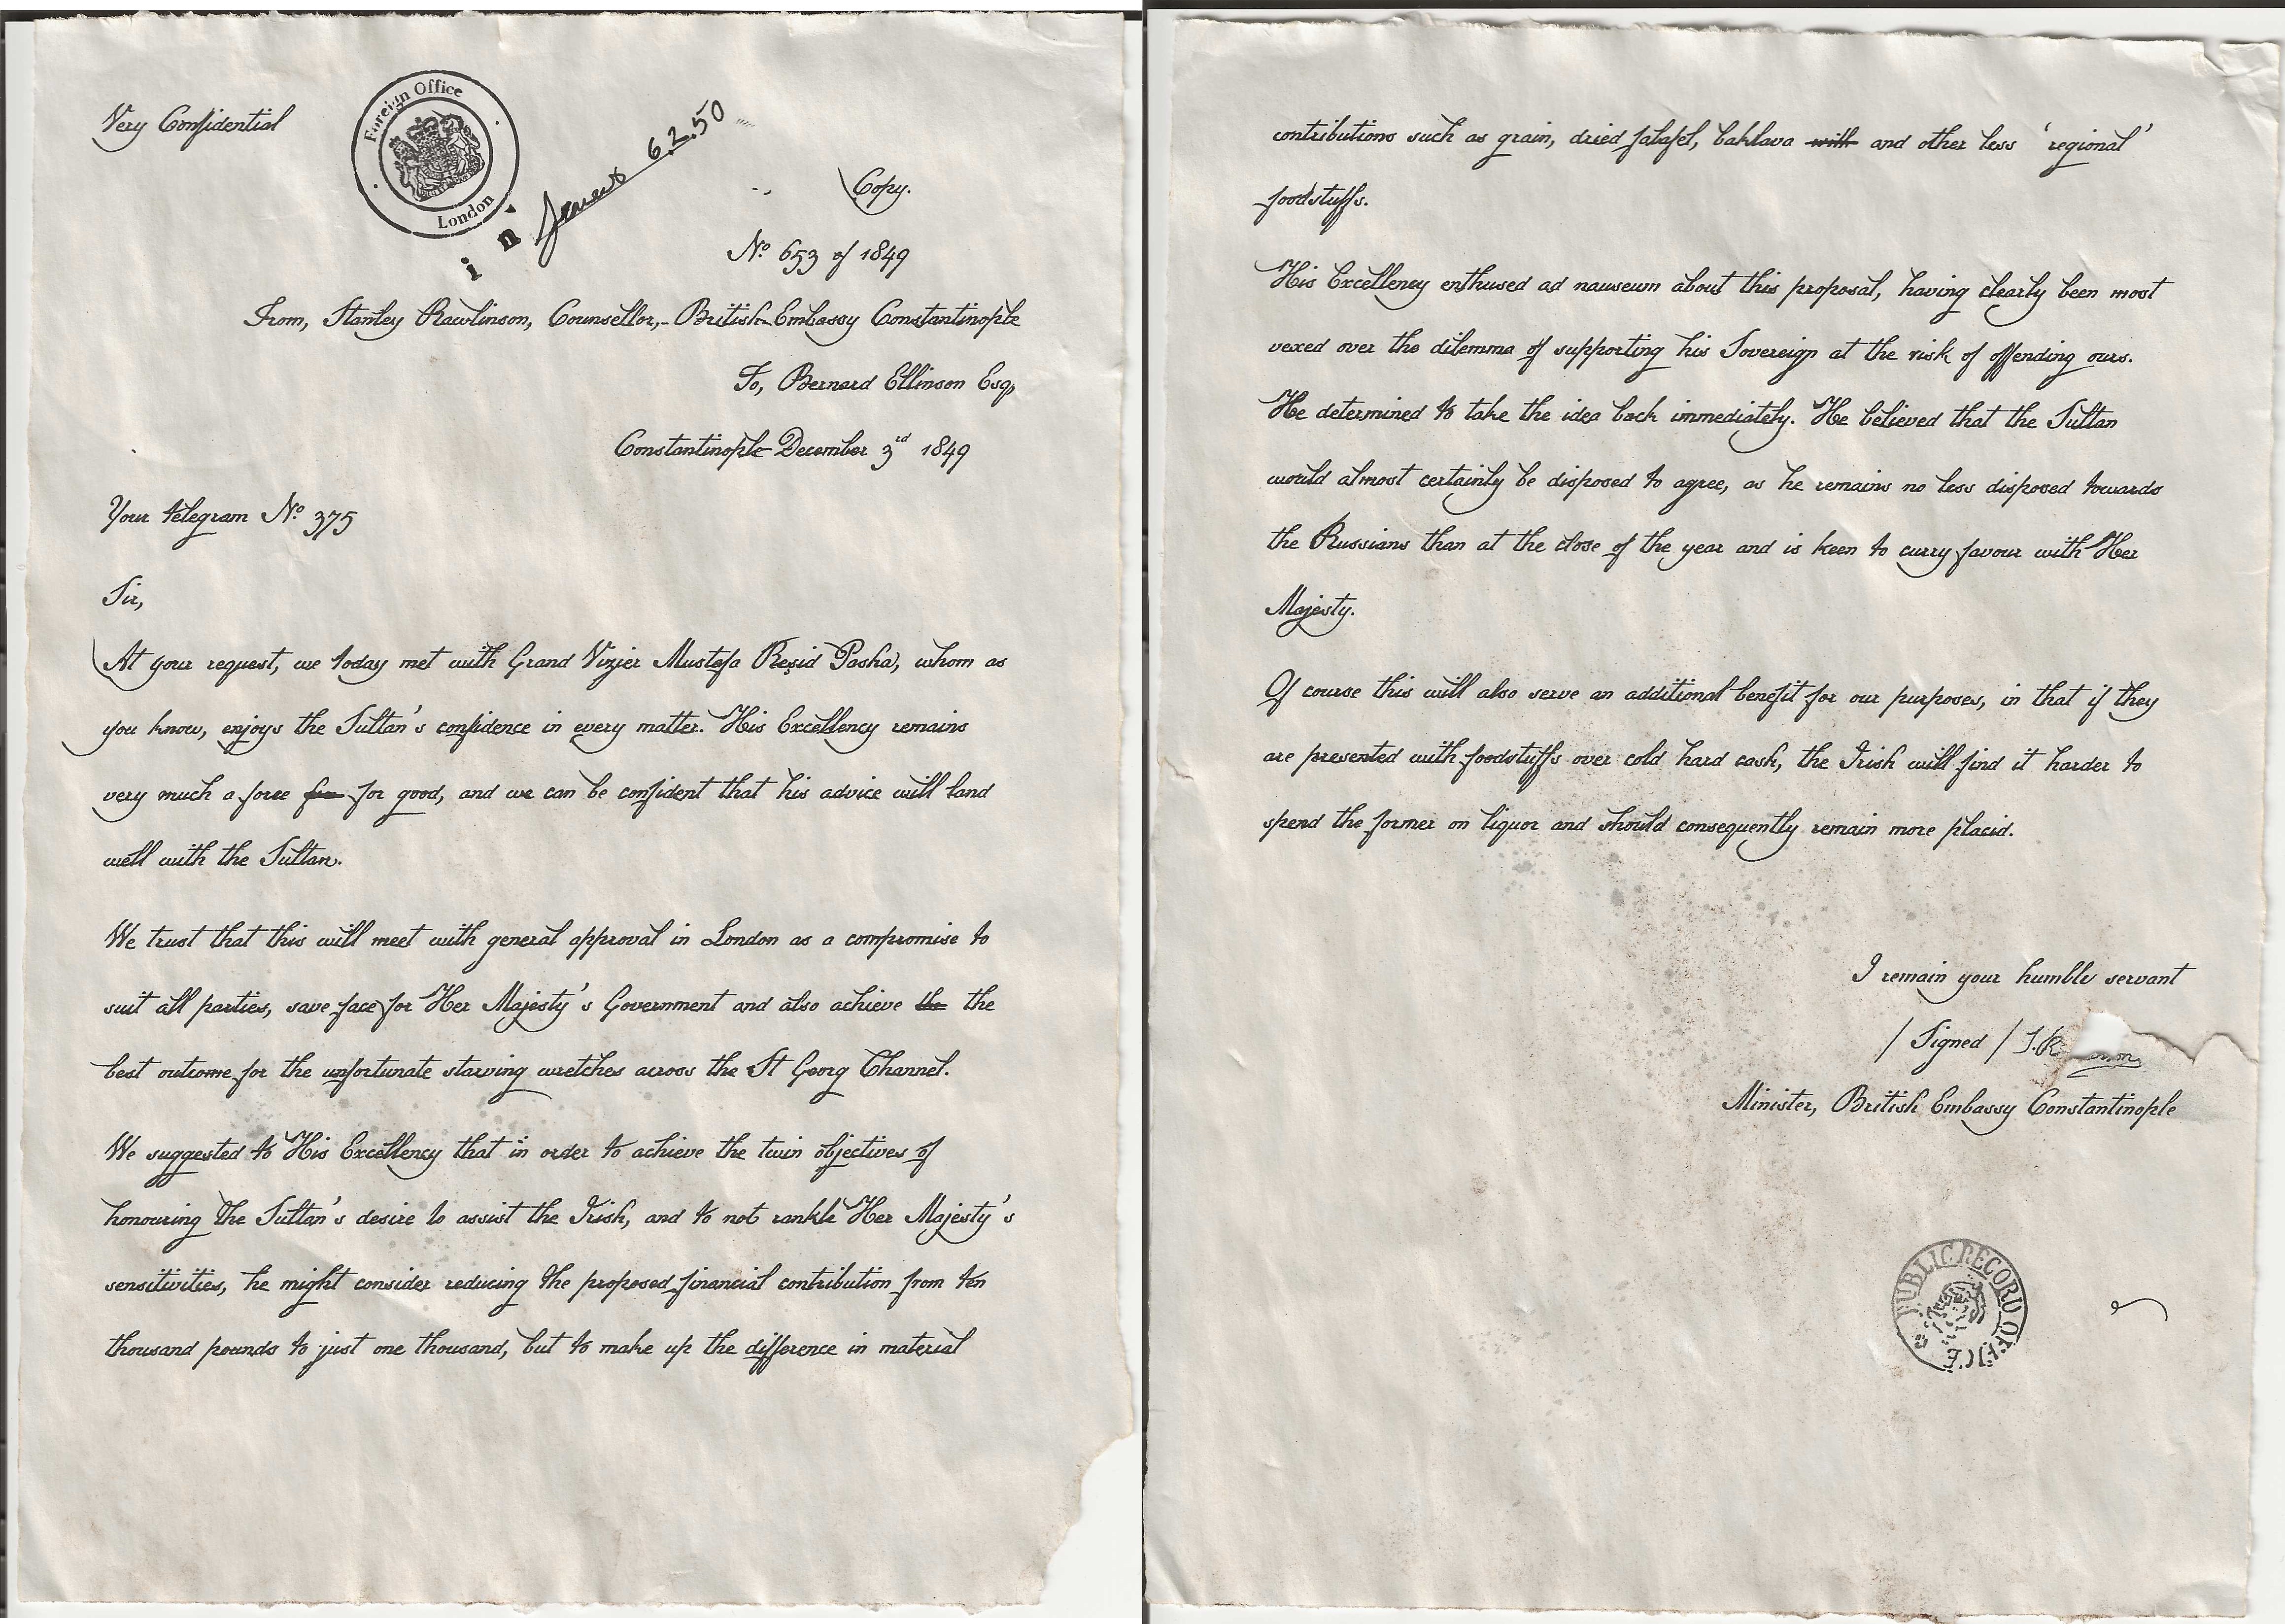 Very Confidential
Foreign Office
London
6.2.50
in
Copy.
Nº 653 of 1849
From, Stanley Rawlinson, Counsellor, British Embassy Constantinople
To, Bernard Ellinson Esq,
Constantinople December 3rd 1849
Your telegram Nº 375
Sir,
At your request, we today met with Grand Vizier Mustafa Reşid Pasha, whom as
you know, enjoys the Sultan's confidence in every matter. His Excellency remains
very much a force for for good, and we can be confident that his advice will land
well with the Sultan.
We trust that this will meet with general approval in London as a compromise to
suit all parties, save face for Her Majesty's Government and also achieve the the
best outcome for the unfortunate starving wretches across the St Georg Channel.
We suggested to His Excellency that in order to achieve the twin objectives of
honouring the Sultan's desire to assist the Irish, and to not rankle Her Majesty's
sensitivities, he might consider reducing the proposed financial contribution from ten
thousand pounds to just one thousand, but to make up the difference in material
contributions such as grain, dried falafel, baklava with and other less 'regional'
foodstuffs.
His Excellency enthused ad nauseum about this proposal, having clearly been most
vexed over the dilemma of supporting his Sovereign at the risk of offending ours.
He determined to take the idea back immediately. He believed that the Sultan
would almost certainly be disposed to agree, as he remains no less disposed towards
the Russians than at the close of the year and is keen to curry favour with Her
Majesty.
Of course this will also serve an additional benefit for our purposes, in that if they
are presented with foodstuffs over cold hard cash, the Irish will find it harder to
spend the former on liquor and should consequently remain more placid.
I remain your humble servant
/ Signed / S.R
Minister, British Embassy Constantinople
PUBLIC RECORD OFFICE